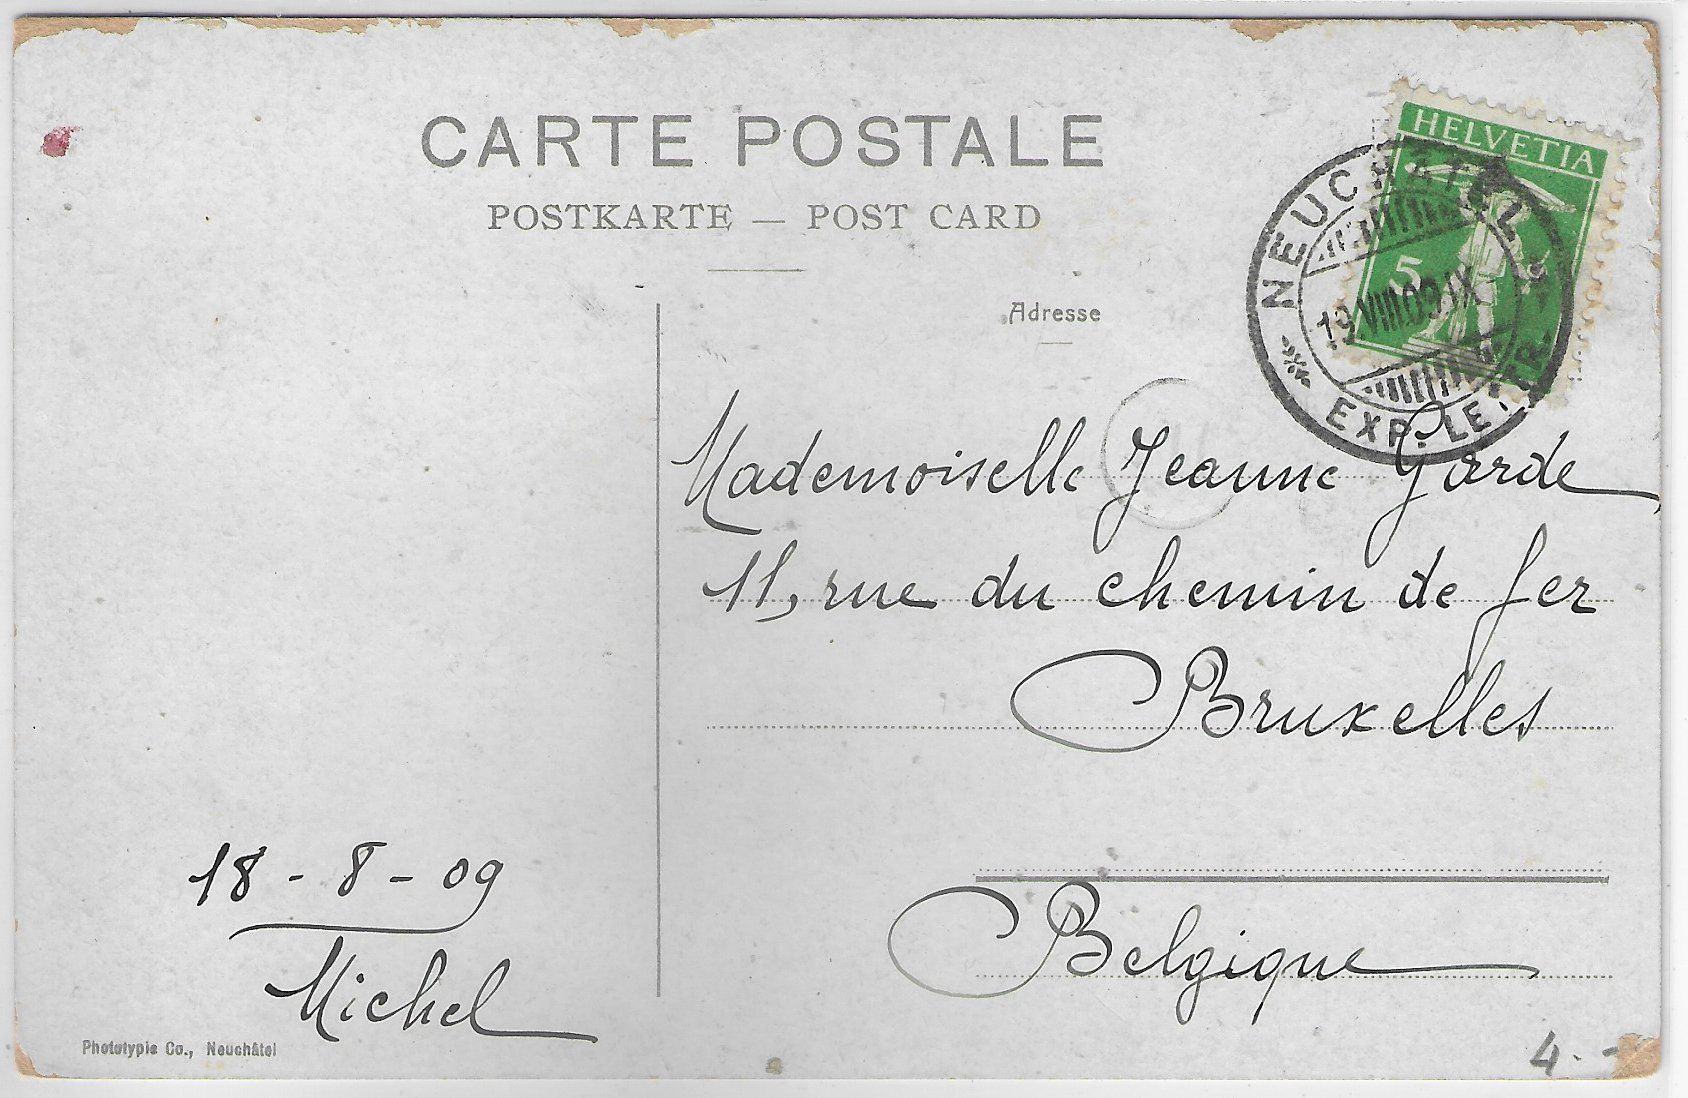 CARTE POSTALE
POSTKARTE — POST CARD
Adresse
HELVETIA
5
NEUCHATEL
19.VIII.09.IX
EXP. LETTR.
Mademoiselle Jeanne Garde
11, rue du chemin de fer
Bruxelles
Belgique
18 - 8 - 09
Michel
Phototypie Co., Neuchâtel
4.-